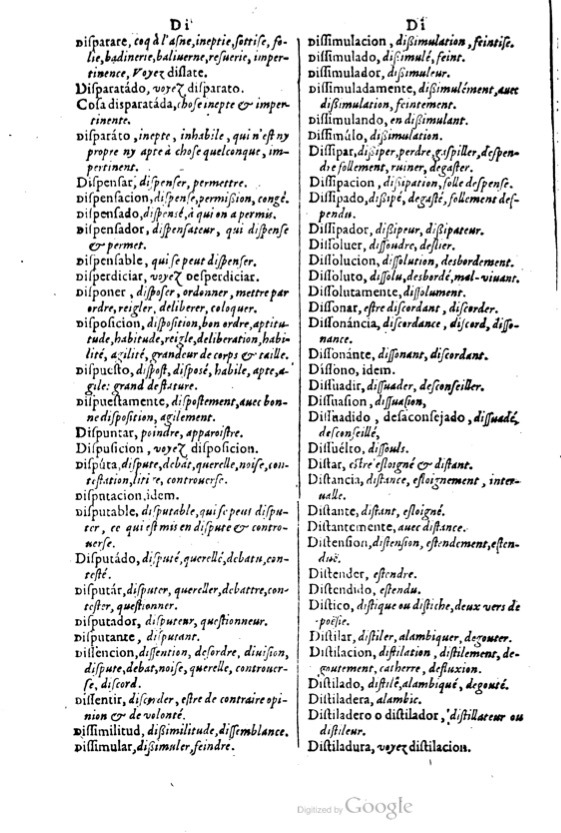 Di
Disparate, coq à l'asne, ineptie, sottise, fo-
lie, badinerie, baliuerne, resuerie, imper-
tinence, Voyez dislate.
Disparatádo, voyez disparato.
Cosa disparatáda, chose inepte & imper-
tinente.
Disparáto, inepte, inhabile, qui n'est ny
propre ny apte à chose quelconque, im-
pertinent.
Dispensar, dispenser, permettre.
Dispensacion, dispense, permission, congé.
Dispensado, dispensé, à qui on a permis.
Dispensador, dispensateur, qui dispense
& permet.
Dispensable, qui se peut dispenser.
Disperdiciar, voyez Desperdiciar.
Disponer, disposer, ordonner, mettre par
ordre, reigler, deliberer, coloquer.
Disposicion, disposition, bon ordre, aptitu-
tude, habitude, reigle, deliberation, habi-
lité, agilité, grandeur de corps & taille.
Dispuesto, dispost, disposé, habile, apte, a-
gile: grand de stature.
Dispuestamente, dispostement, auec bon-
ne disposition, agilement.
Dispuntar, poindre, apparoistre.
Dispusicion, voyez disposicion.
Dispúta, dispute, debat, querelle, noise, con-
testation, controuerse.
Disputacion, idem.
Disputable, disputable, qui se peut dispu-
ter, ce qui est mis en dispute & contro-
uerse.
Disputádo, disputé, querellé, debatu, con-
testé.
Disputár, disputer, quereller, debattre, con-
tester, questionner.
Disputador, disputeur, questionneur.
Disputante, disputant.
Dissencion, dissention, desordre, diuision,
dispute, debat, noise, querelle, controuer-
se, discord.
Dissentir, estre de contraire opi-
nion & de volonté.
Dissimilitud, dißimilitude, dissemblance.
Dissimular, dißimuler, feindre.
Di
Dissimulacion, dißimulation, feintise.
Dissimulado, dißimulé, feint.
Dissimulador, dißimuleur.
Dissimuladamente, dißimulément, auec
dißimulation, feintement.
Dissimulando, en dißimulant.
Dissimúlo, dißimulation.
Dissipar, dißiper, perdre, gaspiller, despen-
dre follement, ruiner, degaster.
Dissipacion, dißipation, folle despense.
Dissipado, dißipé, degasté, follement des-
pendu.
Dissipador, dißipeur, dißipateur.
Dissoluer, dissoudre, deslier.
Dissolucion, dissolution, desbordement.
Dissoluto, dissolu, desbordé, mal-viuant.
Dissolutamente, dissolument.
Dissonar, estre discordant, discorder.
Dissonáncia, discordance, discord, disso-
nance.
Dissonánte, dissonant, discordant.
Dissono, idem.
Dissuadir, dissuader, desconseiller.
Dissuasion, dissuasion,
Dissuadido, desaconsejado, dissuadé,
desconseillé,
Dissuélto, dissouls.
Distar, estre esloigné & distant.
Distancia, distance, esloignement, inter-
ualle.
Distante, distant, esloigné.
Distantemente, auec distance.
Distension, distension, estendement, esten-
due.
Distender, estendre.
Distendido, estendu.
Distico, distique ou distiche, deux vers de
poësie.
Distilar, distiler, alambiquer, degouter.
Distilacion, distilation, distilement, de-
goutement, catherre, defluxion.
Distilado, distilé, alambiqué, degouté.
Distiladera, alambic.
Distiladero o distilador, distillateur ou
distileur.
Distiladura, voyez distilacion.
Digitized by Google